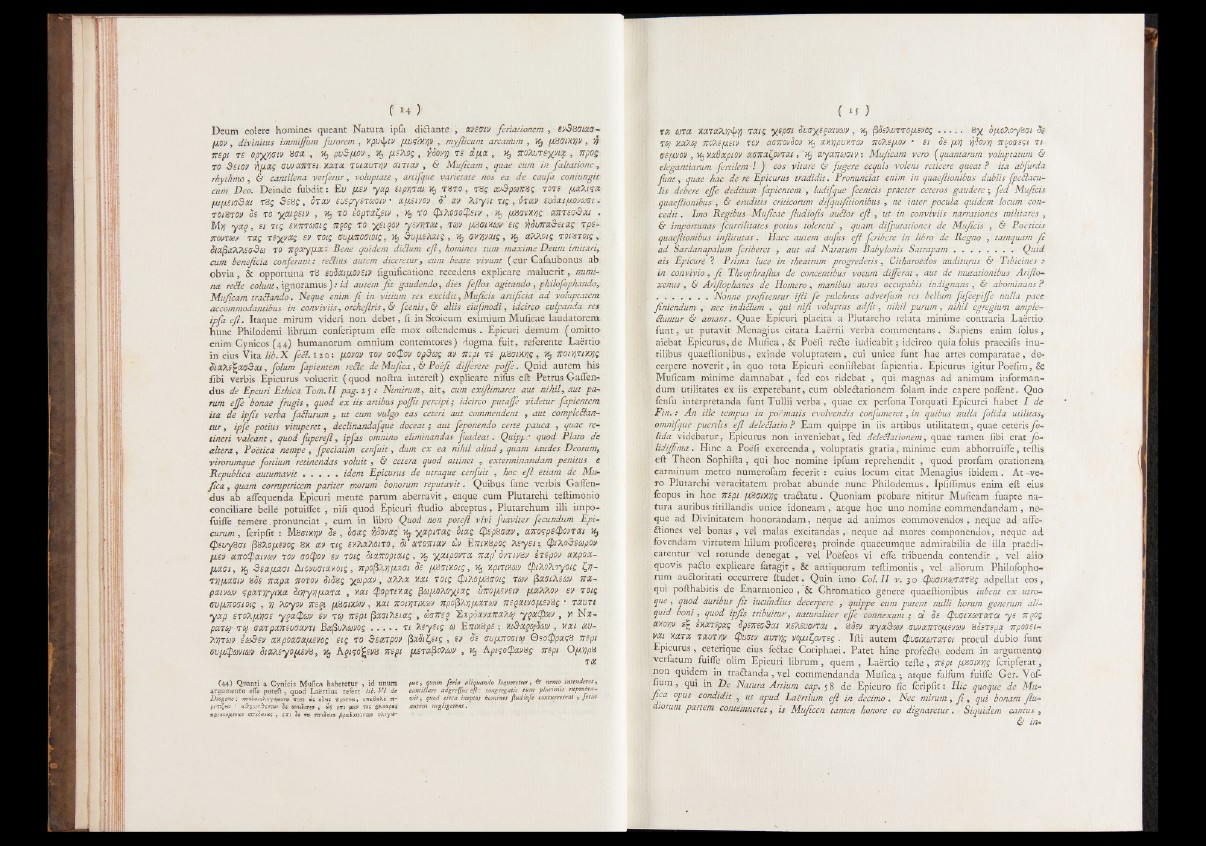 ( 14 )
Deum colere homines queant Natura ipsa dictante , ανεσιν feriationem , ενθουσιασ-
μον , divinitus immissum furorem , κρυψιν μυστικην , mysticum arcanum , και μουσικην , ἡ
περι τε ορχησιν ουσα , και ρυθμον , και μελος , ἡδονῃ τε ἁμα , και πολυτεχνιᾳ , προς
το θειον ἡμας συναπτει κατα τοιαυτην αιτιαν , & Musicam , quae cum in saltatione,
rhythmo , & cantilena versetur , voluptate , artisque varietate nos ea de causa coniungit
cum Deo. Deinde subdit: Ευ μεν γαρ ειρηται και τουτο , τους ανθρωπους τοτε μαλιστα
μιμεισθαι τους θεους , ὁταν ευεργετωσιν · αμεινον δ' αν λεγοι τις , ὁταν ευδαιμονωσι.
τοιουτον δε το χαιρειν , και το εορταζειν , και το φιλοσοφειν , και μουσικης απτεσθαι .
Μη γαρ , ει τις εκπτωσις προς το χειρον γεγενηται , των μουσικων εις ἡδυπαθειας τρε-
ποντων τας τεχνας εν τοις συμποσιοις , και θυμελαις , και σκηναις , και αλλοις τοιουτοις ,
διαβαλλεσθω το πραγμα: Bene quidem dictum est , homines tum maxime Deum imitari,
cum beneficia conferant: rectius autem diceretur, cum beate vivunt (cur Casaubonus ab
obvia , & opportuna του ευδαιμονειν significatione recedens explicare maluerit , numi-
na recte colunt, ignoramus): id autem fit gaudendo, dies festos agitando , philosophando,
Musicam tractando. Neque enim si in vitium res excidit, Musicis artificia ad voluptatem
accommodantibus in conviviis, orchestris, & scenis, & aliis eiusmodi , idcirco culpanda res
ipsa est. Itaque mirum videri non debet , si in Stoicum eximium Musicae laudatorem
hunc Philodemi librum conscriptum esse mox ostendemus . Epicuri demum (omitto
enim Cynicos (44) humanorum omnium contemtores) dogma fuit , referente Laërtio
in eius Vita lib. X sect. 120: μονον τον σοφον ορθως αν περι τε μουσικης , και ποιητικης
διαλεξασθαι , solum sapientem recte de Musica , & Poësi disserere posse . Quid autem his
sibi verbis Epicurus voluerit (quod nostra interest) explicare nisus est Petrus Gassen-
dus de Epcuri Ethica Tom. II pag. 25 : Nimirum , ait , cum existimaret aut nihil , aut pa-
rum esse bonae frugis , quod ex iis artibus possit percipi ; idcirco putasse videtur sapientem
ita de ipsis verba facturum , ut cum vulgo eas ceteri aut commendent , aut complectan-
tur , ipse potius vituperet , declinandasque doceat ; aut seponendo certe pauca , quae re-
tineri valeant , quod superest , ipsas omnino eliminandas suadeat . Quippe quod Plato de
altera , Poëtica nempe , speciatim censuit , dum ex ea nihil aliud , quam laudes Deorum,
virorumque fortium retinendas voluit , & cetera quod attinet , exterminandam penitus e
Republica autumavit . . . . . idem Epicurus de utraque censuit , hoc est etiam de Mu-
sica , quam corruptricem pariter morum bonorum reputavit . Quibus sane verbis Gassen-
dus ab assequenda Epicuri mente parum aberravit , eaque cum Plutarchi testimonio
conciliare belle potuisset , nisi quod Epicuri studio abreptus , Plutarchum illi impo-
suisse temere pronunciat , cum in libro Quod non potest vivi suaviter secundum Epi-
curum , scripsit : Μουσικην δε , ὁσας ἡδονας και χαριτας ὁιας φερουσαν, αποστρεφονται και
φευγουσι βουλομενος ουκ αν τις εκλαλοιτο , δι' ατοπιαν ὡν Επικουρος λεγει ; φιλοθεωρον
μεν αποφαινων τον σοφον εν τοις διαποριαις , και χαιροντα παρ' ὁντινουν ἑτερον ακροα-
μασι , και θεαμασι Διονυσιακοις , προβλημασι δε μουσικοις , και κριτικων φιλολογοις ζη-
τημασιν ουδε παρα ποτον διδους χωραν , αλλα και τοις φιλομουσοις των βασιλεων πα-
ραινων στρατηγικα διηγηματα , και φορτικας βωμολοχιας ὑπομενειν μαλλον εν τοις
συμποσιοις , η λογον περι μουσικων , και ποιητικων προβληματων περαινομενους · ταυτι
γαρ ετολμησε γραφων εν τῳ περι βασιλειας , ὡσπερ Σαρδαναπαλῳ γραφων , η Να-
ρατῳ τῳ σατραπευσαντι Βαβυλωνος . . . . . τι λεγεις ω Επικουρε ; κιθαρῳδων , και αυ-
λητων ἑωθεν ακροασαμενος εις το θεατρον βαδιζεις , εν δε συμποσιῳ Θεοφραστου περι
συμφωνιων διαλεγομενου , και Αριστοξενου περι μεταβολων , και Αριστοφανους περι Ομηρου
τα
(44) Quanti a Cynicis Musica haberetur , id unum
argumento esse potest , quod Laërtius refert lib. VI de
( 15 )
τα ωτα καταληψῃ ταις χερσι δυσχεραινων , και βδελυττομενος . . . . . ουχ ὁμολογουσι δε
τῳ καλῳ πολεμειν τον ασπονδον και ακηρυκτον πολεμον · ει δε μη ἡδονη προσεστι τι
σεμνον , και καθαριον ασπαζονται , και αγαπωσιν : Musicam vero (quantarum voluptatum &
elegantiarum fertilem ! ) eos vitare & fugere ecquis volens reticere queat ? ita absurda
sunt , quae hac de re Epicurus tradidit . Pronunciat enim in quaestionibus dubiis spectacu-
lis debere esse deditum sapientem , ludisque scenicis praeter ceteros gaudere ; sed Musicis
quaestionibus , & eruditis criticorum disquisitionibus , ne inter pocula quidem locum con-
cedit . Imo Regibus Musicae studiosis auctor est , ut in conviviis narrationes militares ,
& importunas scurrilitates potius tolerent , quam disputationes de Musicis , & Poëticis
quaestionibus institutas . Haec autem ausus est scribere in libro de Regno , tamquam si
ad Sardanapalum scriberet , aut ad Naratum Babylonis Satrapam . . . . . . . . Quid
ais Epicure ? Prima luce in theatrum progrederis , Citharoedos auditurus & Tibicines :
in convivio , si Theophrastus de concentibus vocum disserat , aut de mutationibus Aristo-
xenus , & Aristophanes de Homero , manibus aures occupabis indignans , & abominans ?
. . . . . . . Nonne profitentur isti se pulchras adversum res bellum suscepisse nulla pace
finiendum , nec indictum . qui nisi voluptas adsit , nihil purum , nihil egregium ample-
ctuntur & amant. Quae Epicuri placita a Plutarcho relata minime contraria Laërtio
sunt , ut putavit Menagius citata Laërtii verba commentans . Sapiens enim solus ,
aiebat Epicurus, de Musica , & Poësi recte iudicabit ; idcirco quia solus praecisis inu-
tilibus quaestionibus , exinde voluptatem , cui unice sunt hae artes comparatae , de-
cerpere noverit , in quo tota Epicuri consistebat sapientia. Epicurus igitur Poësim, &
Musicam minime damnabat , sed eos ridebat , qui magnas ad animum informan-
dum utilitates ex iis expetebant, cum oblectationem solam inde capere possent. Quo
sensu interpretanda sunt Tullii verba , quae ex persona Torquati Epicurei habet I de
Fin. : An ille tempus in poëmatis evolvendis consumeret, in quibus nulla solida utilitas,
omnisque puerilis est delectatio ? Eam quippe in iis artibus utilitatem, quae ceteris so-
lida videbatur, Epicurus non inveniebat, sed delectationem, quae tamen sibi erat so-
lidissima . Hinc a Poësi exercenda , voluptatis gratia, minime eum abhorruisse, testis
est Theon Sophista , qui hoc nomine ipsum reprehendit , quod prorsam orationem
carminum metro numerosam fecerit : cuius locum citat Menagius ibidem . At ve-
ro Plutarchi veracitatem probat abunde nunc Philodemus . Ipsissimus enim est eius
scopus in hoc περι μουσικης tractatu . Quoniam probare nititur Musicam suapte na-
tura auribus titillandis unice idoneam , atque hoc uno nomine commendandam , ne-
que ad Divinitatem honorandam, neque ad animos commovendos , neque ad affe-
ctiones vel bonas , vel malas excitandas , neque ad mores componendos, neque ad
fovendam virtutem hilum proficere; proinde quaecumque admirabilia de illa praedi-
carentur vel rotunde denegat , vel Poëseos vi esse tribuenda contendit , vel alio
quovis pacto explicare satagit , & antiquorum testimoniis , vel aliorum Philosopho-
rum auctoritati occurrere studet . Quin imo Col. II v. 30 φυσικωτατους adpellat eos ,
qui posthabitis de Enarmonico , & Chromatico genere quaestionibus iubent ex utro-
que , quod auribus fit iucundius decerpere , quippe cum putent nulli horum generum ali-
quid boni , quod ipsis tribuitur, naturaliter esse connexum ; οἱ δε φυσικωτατα γε προς
ακοην εξ ἑκατερας δρεπεσθαι κελευονται , ουδεν αγαθων συναπτομενον ουδετερᾳ προσει-
ναι κατα ταυτην φυσιν αυτης νομιζοντες . Isti autem φυσικωτατοι procul dubio sunt
Epicurus , ceterique eius sectae Coriphaei. Patet hinc profecto eodem in argumento
versatum fuisse olim Epicuri librum , quem , Laërtio teste , περι μουσικης scripserat ,
non quidem in tractanda , vel commendanda Musica ; atque falsum fuisse Ger. Vos-
sium , qui in De Natura Artium cap. 58 de Epicuro sic scripsit : Hic quoque de Mu-
sica opus condidit , ut apud Laërtium est in decimo . Nec mirum, si , qui bonam stu-
diorum partem contemneret , is Musicen tamen honore eo dignaretur . Siquidem cantus ,
& in-